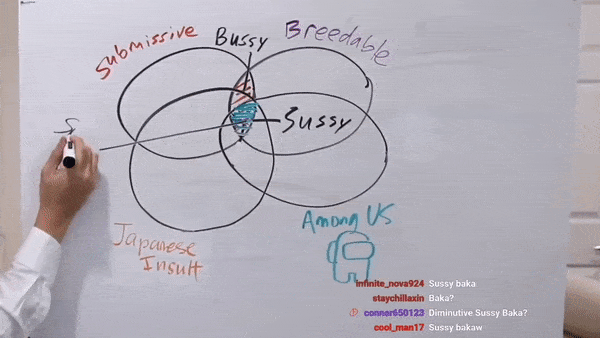 Submissive
Bussy
Breedable
S
Sussy
Japanese
Insult
Among Us
infinite_nova924 Sussy baka
staychillaxin Baka?
conner650123 Diminutive Sussy Baka?
cool_man17 Sussy bakaw